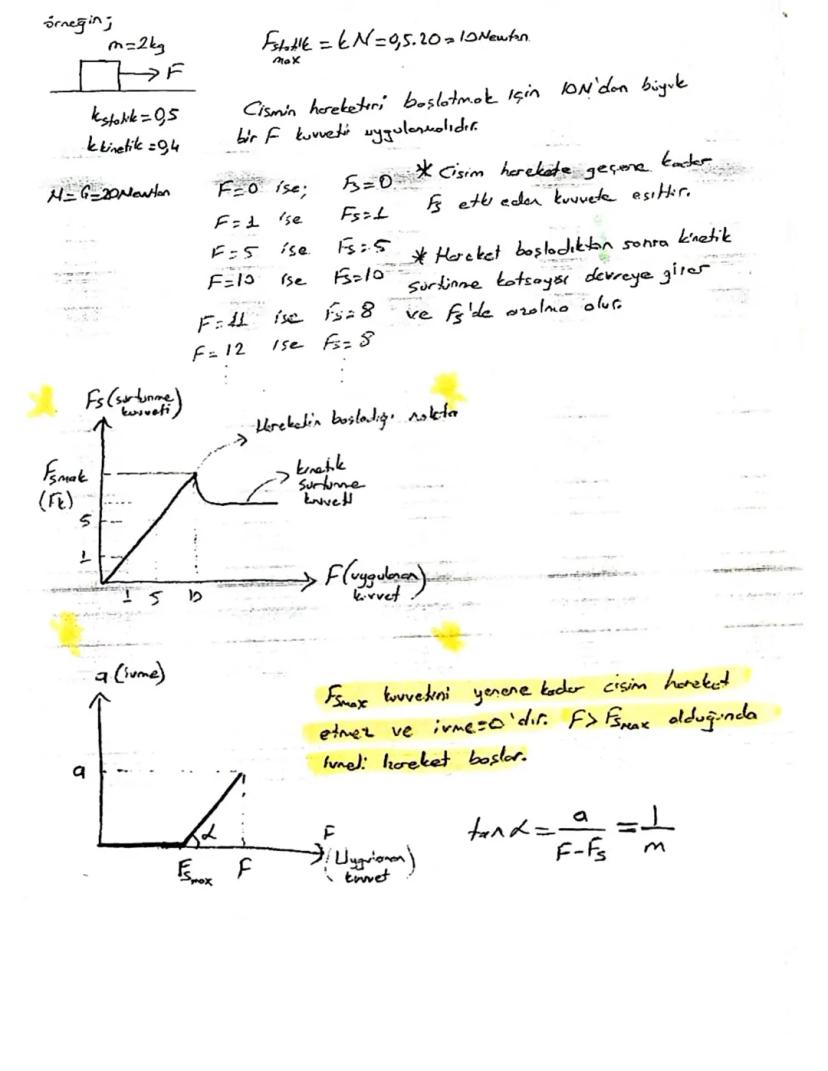 örneğin;
m=2kg
F
kstatik=0,5
kkinetik=0,4
N=G=20Newton
Fstatik max = kN=0,5.20=10Newton
Cismin hareketini başlatmak için 10N'dan büyük
bir F kuvveti uygulanmalıdır.
F=0 ise; Fs=0
F=1 ise Fs=1
F=5 ise Fs=5
F=10 ise Fs=10
F=11 ise Fs=8
F=12 ise Fs=8
* Cisim harekete geçene kadar
Fs etki eden kuvvete eşittir.
* Hareket başladıktan sonra kinetik
sürtünme katsayısı devreye girer
ve Fs'de azalma olur.
Fs (sürtünme
kuvveti)
Hareketin başladığı nokta
Fsmak
(Fk)
kinetik
sürtünme
kuvveti
5
1
1 5 10
F(uygulanan
kuvvet)
a (ivme)
a
α
Fsmax F
F
(Uygulanan
kuvvet)
Fsmax kuvvetini yenene kadar cisim hareket
etmez ve ivme=0'dır. F>Fsmax olduğunda
ivmeli hareket başlar.
tanα = a/(F-Fs) = 1/m